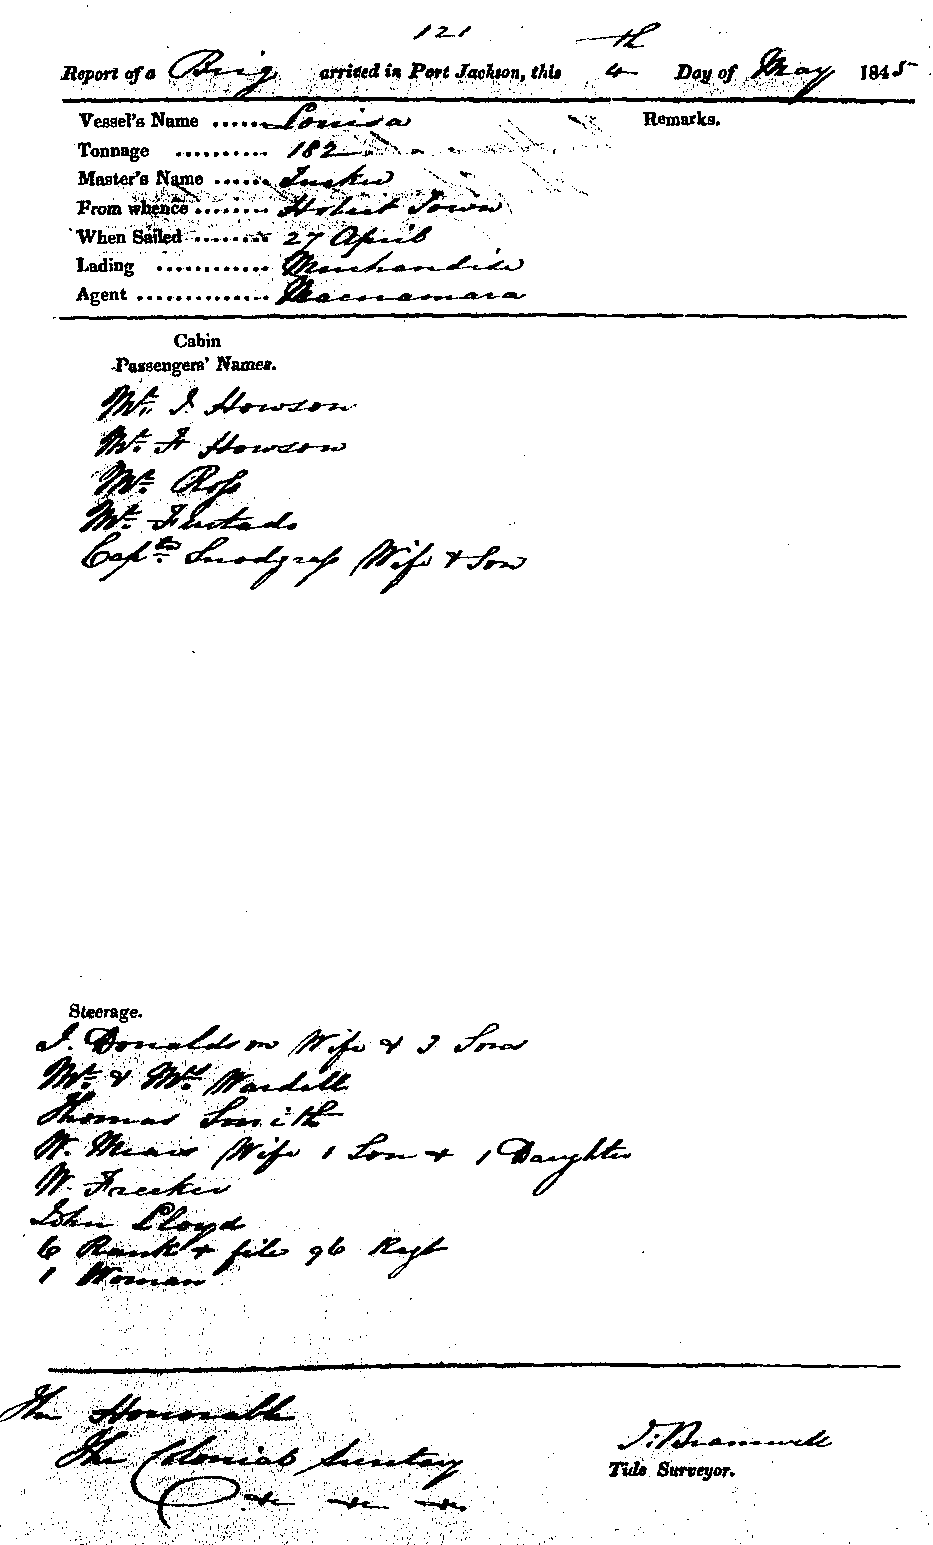 121
Report of a Brig arrived in Port Jackson, this 4th Day of May 1845
Vessel's Name ...... Louisa
Remarks.
Tonnage .......... 182
Master's Name ...... Tucker
From whence ........ Hobart Town
When Sailed ........ 27 April
Lading ............ Merchandise
Agent .............. Macnamara
Cabin
Passengers' Names.
Mr. J. Howson
Mr. Fr Howson
Mr. Ross
Mr. Furtado
Captn Snodgrass Wife & Son
Steerage.
J. Donaldson Wife & 3 Sons
Mr. & Mrs. Wardell
Thomas Smith
W. Mears Wife 1 Son & 1 Daughter
W. Freeker
John Lloyd
6 Rank & file 96 Regt
1 Woman
The Honorable
The Colonial Secretary
&c &c &c
J. Bramwell
Tide Surveyor.